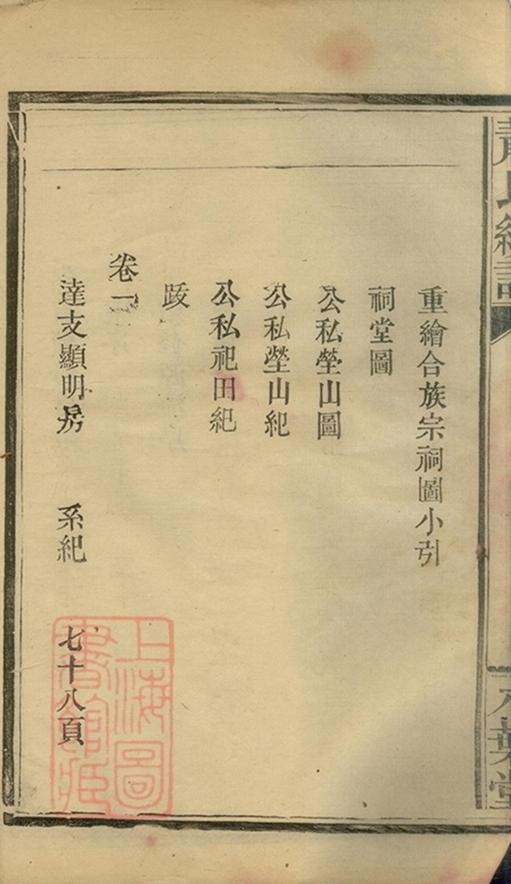 重繪合族宗祠圖小引
祠堂圖
公私塋山圖
公私塋山紀
公私祀田紀
跋
卷一
達支顯明房 系紀 七十八頁
上海圖書館藏